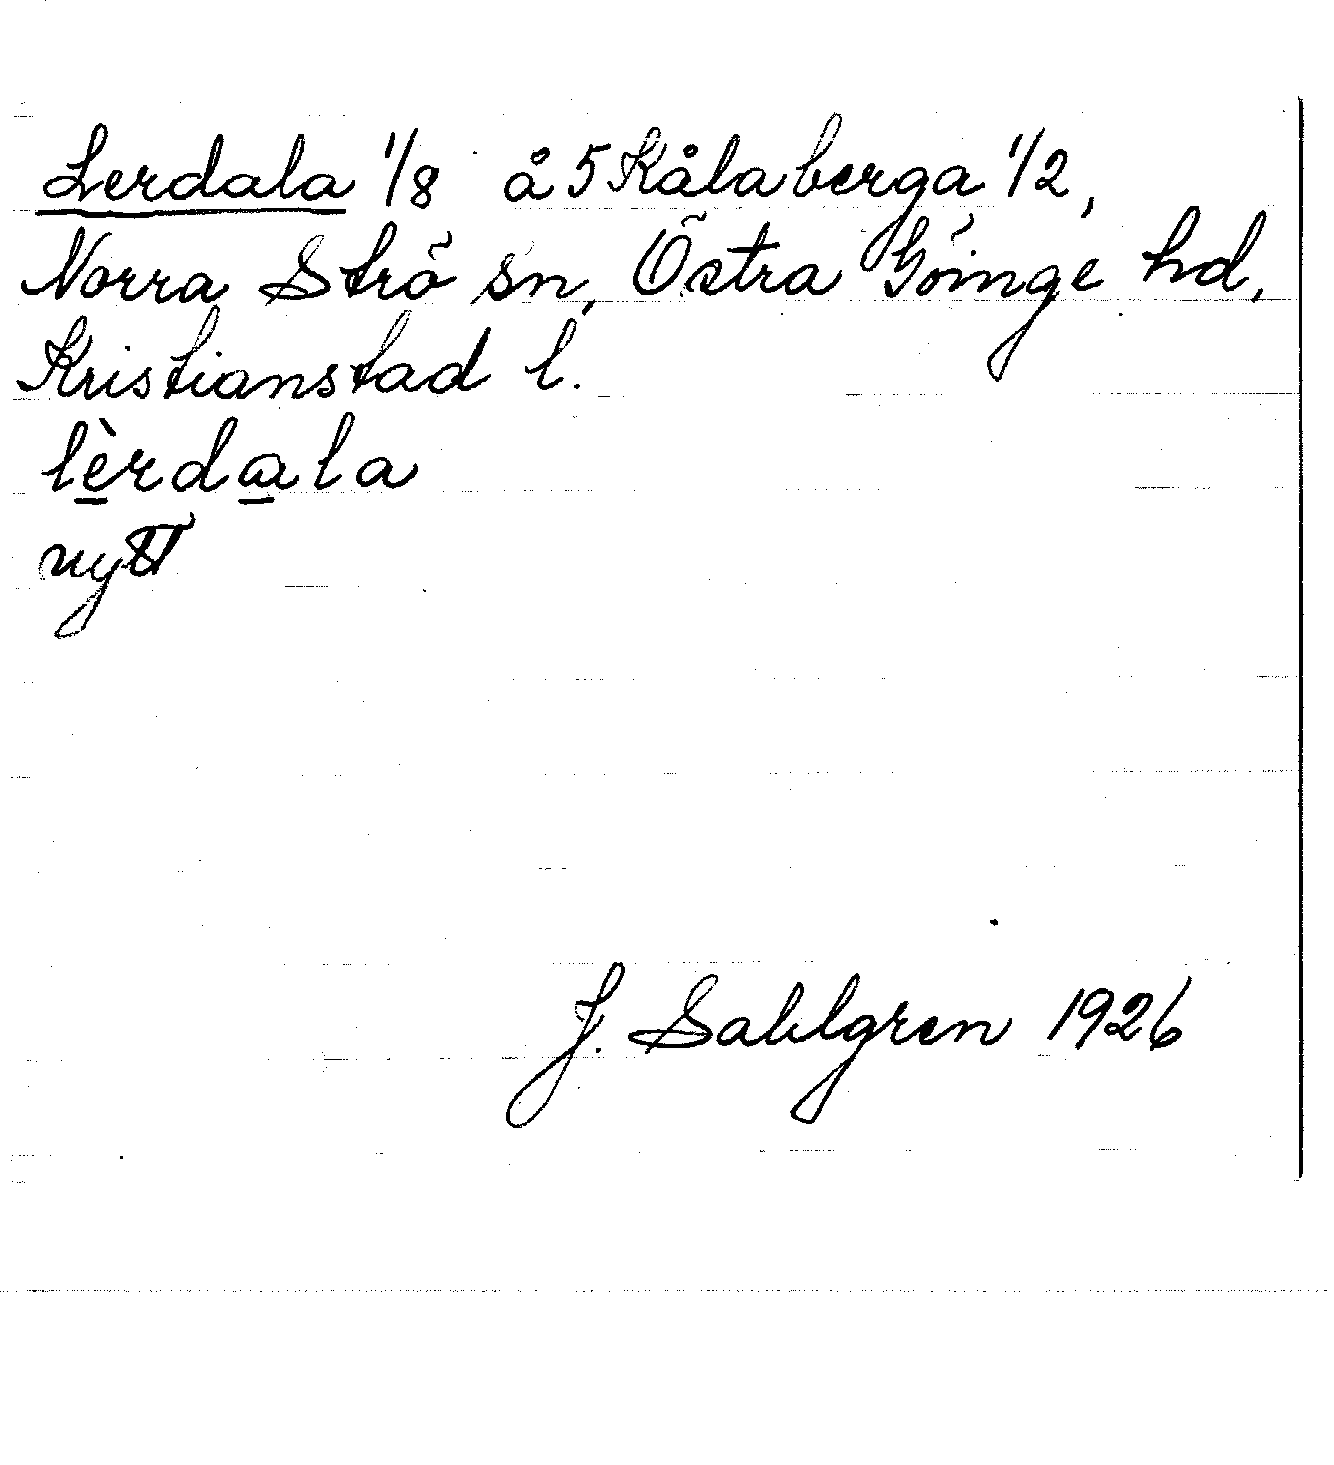 Lerdala 1/8 å 5 Kålaberga 1/2,
Norra Strö sn, Östra Göinge hd,
Kristianstad l.
lèrdala
nytt
J. Sahlgren 1926